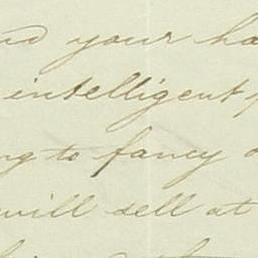 your ha
intelligent
ng to fancy
will sell at